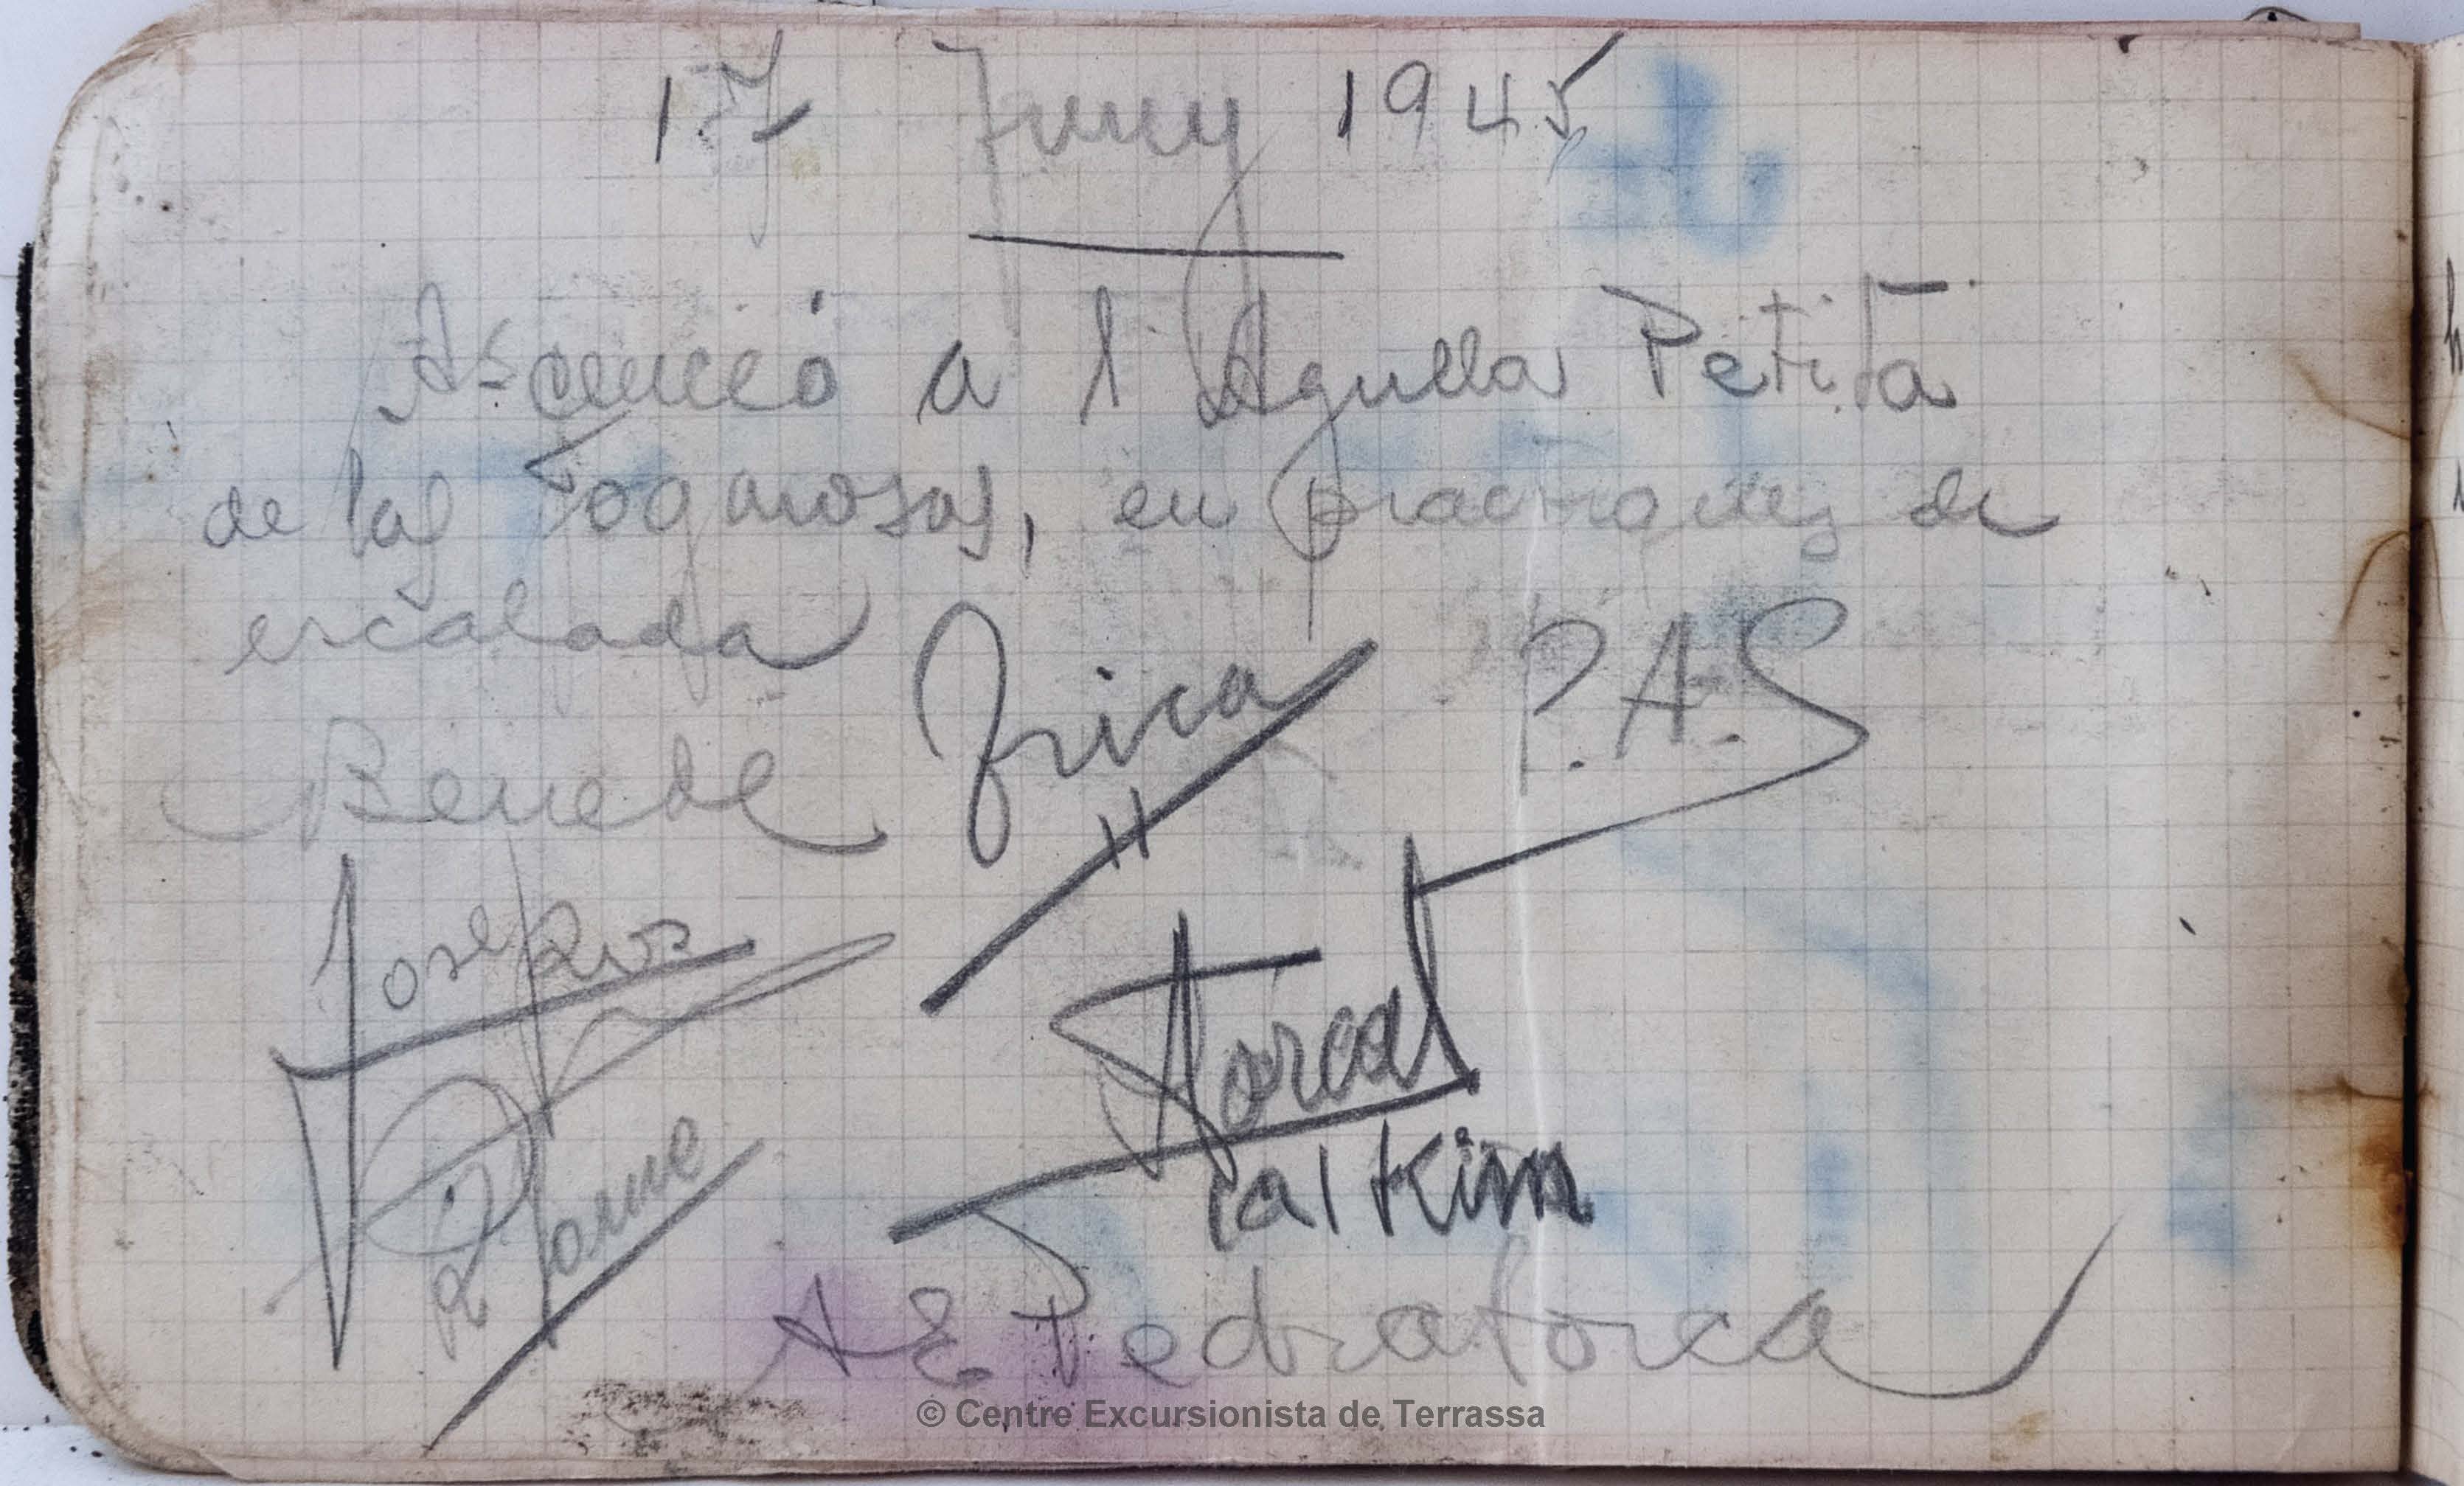 17 Juny 1945
Ascenció a l'Agulla Petita
de las Fogarosas, en practiques de
escalada
Benede Brica P.A.S
Josep Ros
Torcat
R Jaume
Kim
A E Pedraforca
© Centre Excursionista de Terrassa